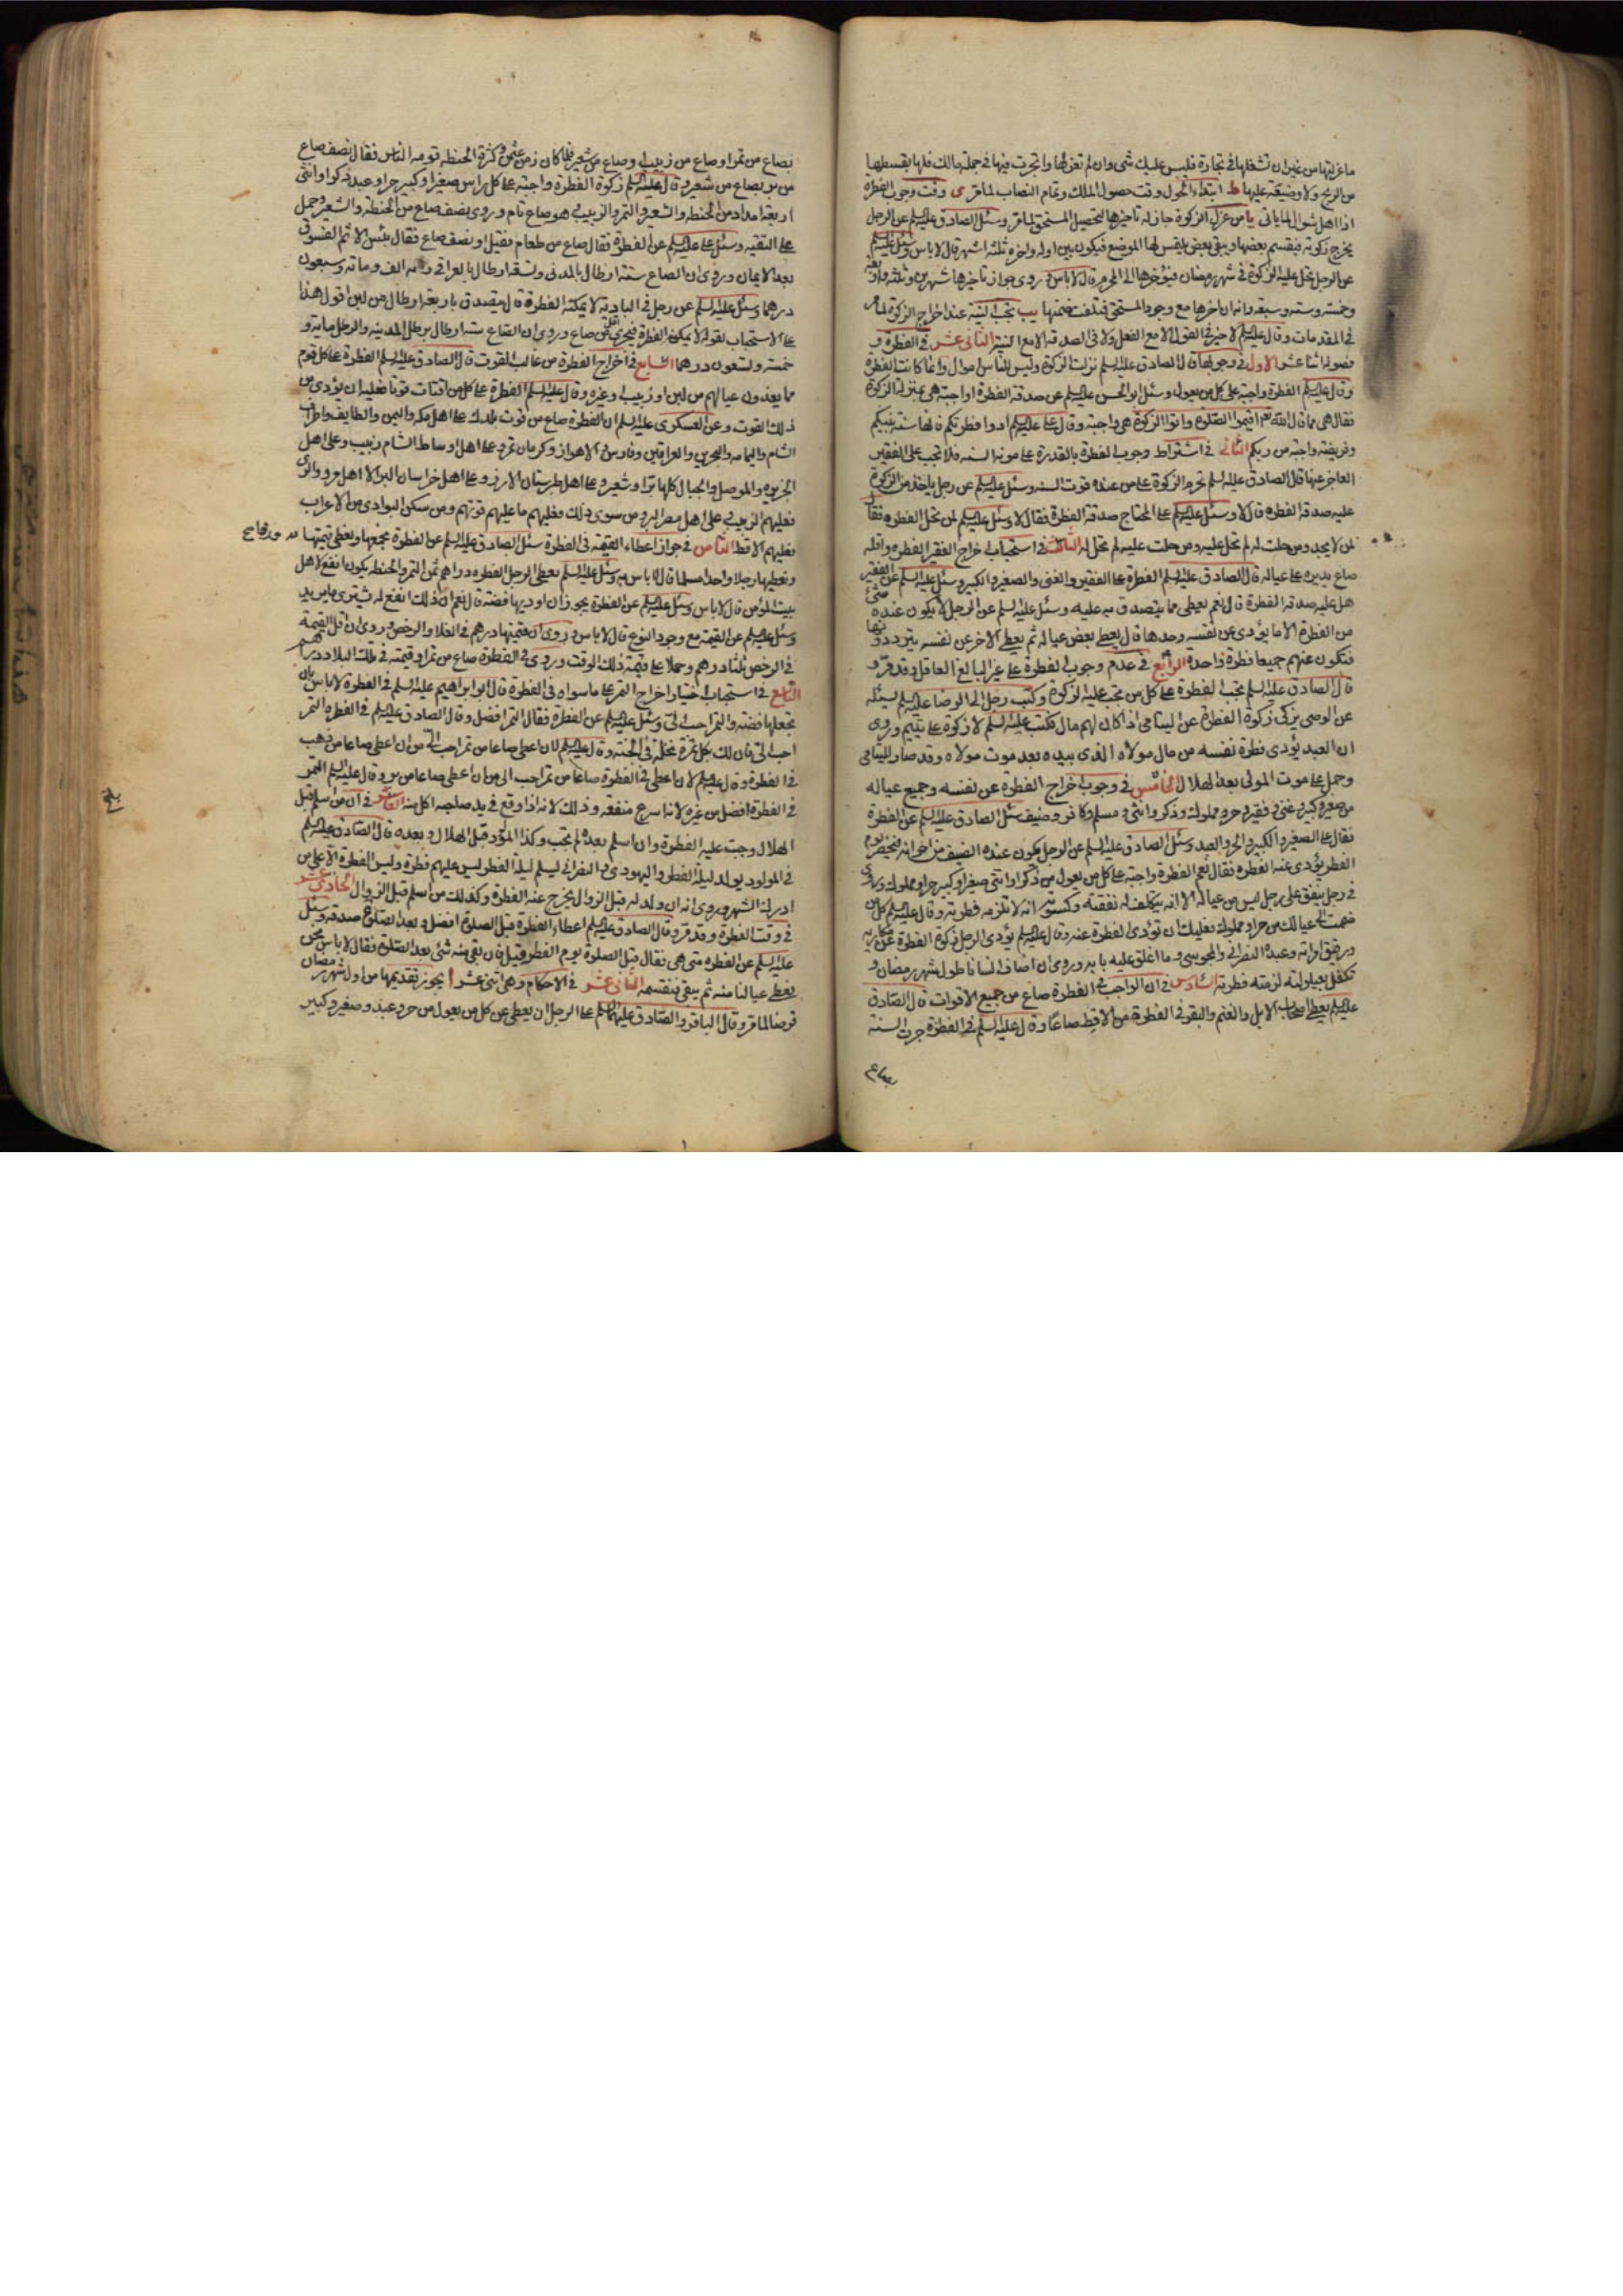 ما عزلتها من غيران تشغلها في تجارة فليس عليك شي وان لم تعزلها واتجرت فيها في جملة مالك فلها بقسطها
من الربح ولا وضيعة عليها ط ابتداء الحول وقت حصول الملك وتمام النصاب لما مر ى وقت وجوب الفطره
اذا اهل شوال لما ياتى يا من عزل الزكوة جاز له تاخيرها لتحصيل المستحق لما مر وسئل الصادق عليه السلم عن الرجل
يخرج زكوته فيقسم بعضها ويبقى بعض يلتمس لها الموضع فيكون بين اوله واخره ثلثة اشهر قال لا باس وسئل عليه السلم
عن الرجل تحل عليه الزكوة في شهر رمضان فيؤخرها الى المحرم قال لا باس وروى جواز تاخيرها شهرين وثلثه واربعة
وخمسه وسته وسبعه وانه ان اخرها مع وجود المستحق فتلفت ضمنها يب تجب النية عند اخراج الزكوة لما مر
في المقدمات وقال عليه السلم لا خير في القول الا مع الفعل ولا في الصدقة الا مع النية الثانى عشر في الفطرة و
فصوله اثنا عشر الاول في وجوبها قال الصادق عليه السلم نزلت الزكوة وليس للناس اموال وانما كانت الفطرة
وقال عليه السلم الفطرة واجبة على كل من يعول وسئل ابو الحسن عليه السلم عن صدقة الفطرة اواجبة هى بمنزلة الزكوة
فقال هى مما قال الله تعالى اقيموا الصلوة واتوا الزكوة هى واجبة وقال على عليه السلم ادوا فطرتكم فانها سنة نبيكم
وفريضة واجبة من ربكم الثانى في اشتراط وجوب الفطرة بالقدرة على مونة السنه فلا تجب على الفقير
العاجز عنها قال الصادق عليه السلم تحرم الزكوة على من عنده قوت السنه وسئل عليه السلم عن رجل ياخذ من الزكوة
عليه صدقة الفطرة قال لا وسئل عليه السلم على المحتاج صدقة الفطرة فقال لا وسئل عليه السلم لمن تحل الفطره فقال
لمن لا يجد ومن حلت له لم تحل عليه ومن حلت عليه لم تحل له الثالث في استحباب اخراج الفقير الفطره واقله
صاع يديره على عياله قال الصادق عليه السلم الفطرة على الفقير والغنى والصغير والكبير وسئل عليه السلم عن الفقير
هل عليه صدقة الفطرة قال نعم يعطى مما يتصدق به عليه وسئل عليه السلم عن الرجل لا يكون عنده شئ
من الفطرة الا ما يؤدى عن نفسه وحدها قال يعطى بعض عياله ثم يعطى الاخر عن نفسه يترددونها
فتكون عنهم جميعا فطرة واحدة الرابع في عدم وجوب الفطرة على غير البالغ العاقل وقد مر و
قال الصادق عليه السلم تجب الفطرة على كل من تجب عليه الزكوة وكتب رجل الى الرضا عليه السلم يسئله
عن الوصى يزكى زكوة الفطرة عن اليتامى اذا كان لهم مال فكتب عليه السلم لا زكوة على يتيم وروى
ان العبد يؤدى فطرة نفسه من مال مولاه الذى بيده بعد موت مولاه وقد صار لليتامى
وحمل على موت المولى بعد الهلال الخامس في وجوب اخراج الفطرة عن نفسه وجميع عياله
من صغير وكبير وغنى وفقير وحر ومملوك وذكر وانثى ومسلم وكافر وضيف سئل الصادق عليه السلم عن الفطرة
فقال على الصغير والكبير والحر والعبد وسئل الصادق عليه السلم عن الرجل يكون عنده الضيف من اخوانه فيحضر يوم
الفطر يؤدى عنه الفطرة فقال نعم الفطرة واجبة على كل من يعول من ذكر او انثى صغير او كبير حر او مملوك وروى
في رجل ينفق على رجل ليس من عياله الا انه يتكلف له نفقته وكسوته انه لا تلزمه فطرته وقال عليه السلم كل من
ضممت الى عيالك من حر او مملوك فعليك ان تؤدى الفطرة عنه وقال عليه السلم يؤدى الرجل زكوة الفطرة عن مكاتبه
ورقيق امراته وعبده النصرانى والمجوسى وما اغلق عليه بابه وروى ان اضاف انسانا طول شهر رمضان و
تكفل بعيلولته لزمته فطرته السادس في ان الواجب في الفطرة صاع من جميع الاقوات قال الصادق
عليه السلم يعطى اصحاب الابل والغنم والبقر في الفطرة من الاقط صاعا وقال عليه السلم في الفطرة جرت السنة
بصاع
بصاع من تمر او صاع من زبيب او صاع من شعير فلما كان زمن عثمن وكثرة الحنطه قومه الناس فقال نصف صاع
من بر بصاع من شعير وقال عليه السلم زكوة الفطرة واجبة على كل راس صغير او كبير حر او عبد ذكر او انثى
اربعة امداد من الحنطه والشعير والتمر والزبيب هو صاع تام وروى نصف صاع من الحنطة والشعير وحمل
على التقيه وسئل على عليه السلم عن الفطرة فقال صاع من طعام فقيل او نصف صاع فقال بئس الاسم الفسوق
بعد الايمان وروى ان الصاع ستة ارطال بالمدنى وتسعة ارطال بالعراقى الف ومائة وسبعون
درهما وسئل عليه السلم عن رجل في البادية لا يمكنه الفطرة قال يتصدق باربعة ارطال من لبن اقول هذا
على الاستحباب لقوله لا يمكنه الفطرة فيجزى اقل من صاع وروى ان الصاع ستة ارطال برطل المدينه والرطل مايه و
خمسه وتسعون درهما السابع في اخراج الفطرة من غالب القوت قال الصادق عليه السلم الفطرة على كل قوم
مما يغذون عيالهم من لبن او زبيب او غيره وقال عليه السلم الفطرة على كل من اقتات قوتا فعليه ان يؤدى من
ذلك القوت وعن العسكرى عليه السلم ان الفطرة صاع من قوت بلدك على اهل مكه واليمن والطايف واطراف
الشام واليمامه والبحرين والعراقين وفارس والاهواز وكرمان تمر وعلى اهل اوساط الشام زبيب وعلى اهل
الجزيره والموصل والجبال كلها برا او شعير وعلى اهل طبرستان الارز وعلى اهل خراسان البر الا اهل مرو والرى
فعليهم الزبيب وعلى اهل مصر البر ومن سوى ذلك فعليهم ما غلب قوتهم ومن سكن البوادى من الاعراب
فعليهم الاقط الثامن في جواز اعطاء القيمة في الفطرة سئل الصادق عليه السلم عن الفطرة نجمعها ونعطى قيمتها
ونعطيها رجلا واحدا مسلما قال لا باس به وسئل عليه السلم يعطى الرجل الفطره دراهم ثمن التمر والحنطه يكون انفع لاهل
بيت المؤمن قال لا باس وسئل عليه السلم عن الفطرة يجوز ان اوديها فضة قال نعم ان ذلك انفع له يشترى ما يريد
وسئل عليه السلم عن القيمة مع وجود النوع قال لا باس وروى ان قيمتها درهم في الغلا والرخص وروى ان اقل القيمة
في الرخص ثلثا درهم وحملا على قيمة ذلك الوقت وروى في الفطرة صاع من تمر او قيمته في تلك البلاد دراهم
التاسع في استحباب اختيار اخراج التمر على ما سواه في الفطرة قال ابو ابراهيم عليه السلم في الفطرة لا باس بان
تجعلها فضة والتمر احب الى وسئل عليه السلم عن الفطرة فقال التمر افضل وقال الصادق عليه السلم في الفطره التمر
احب الى فان لك بكل تمرة نخلة في الجنه وقال عليه السلم لان اعطى صاعا من تمر احب الى من ان اعطى صاعا من ذهب
في الفطرة وقال عليه السلم لان اعطى في الفطرة صاعا من تمر احب الى من ان اعطى صاعا من بر وقال عليه السلم التمر
في الفطرة افضل من غيره لانه اسرع منفعه وذلك لانه اذا وقع في يد صاحبه اكل منه العاشر في ان من اسلم قبل
الهلال وجبت عليه الفطرة وان اسلم بعده لم تجب وكذا المولود قبل الهلال وبعده قال الصادق عليه السلم
في المولود يولد ليلة الفطر واليهودى والنصرانى يسلم ليلة الفطر ليس عليهم فطرة وليس الفطرة الا على من
ادرك الشهر وروى انه ان ولد له قبل الزوال يخرج عنه الفطرة وكذلك من اسلم قبل الزوال الحادى عشر
في وقت الفطرة وقد مر وقال الصادق عليه السلم اعطاء الفطرة قبل الصلوة افضل وبعد الصلوة صدقه وسئل
عليه السلم عن الفطره متى هى فقال قبل الصلوة يوم الفطر وقيل فان بقى منه شئ بعد الصلوة فقال لا باس نحن
نعطى عيالنا منه ثم يبقى فنقسمه الثانى عشر في الاحكام وهى اثنى عشر ا يجوز تقديمها من اول شهر رمضان
قرضا لما مر وقال الباقر والصادق عليهما السلم على الرجل ان يعطى عن كل من يعول من حر وعبد وصغير وكبير